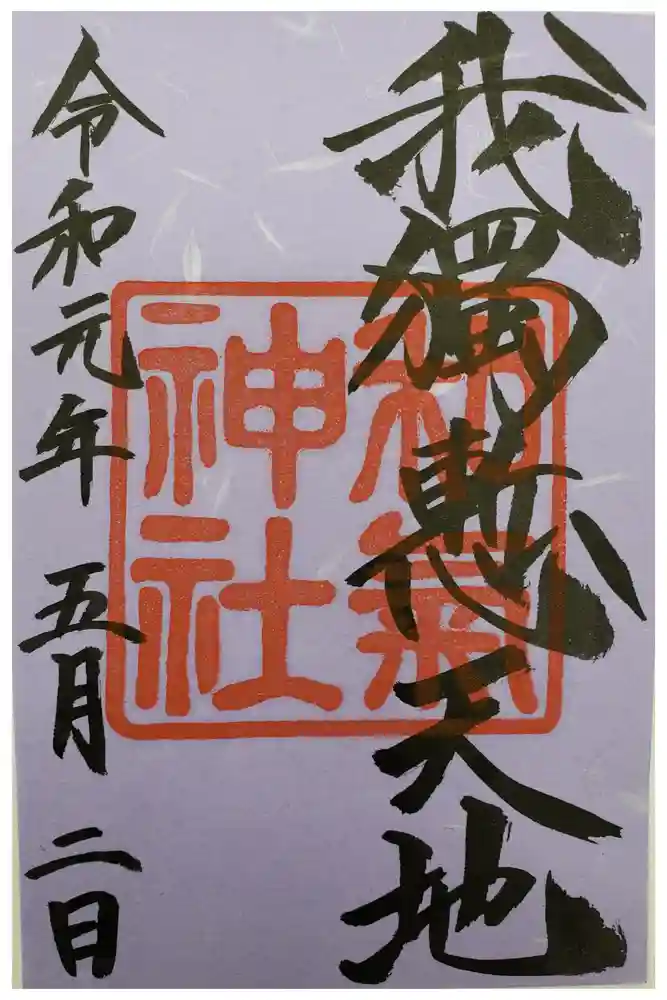 我獨慙天地
和氣神社
令和元年 五月 二日